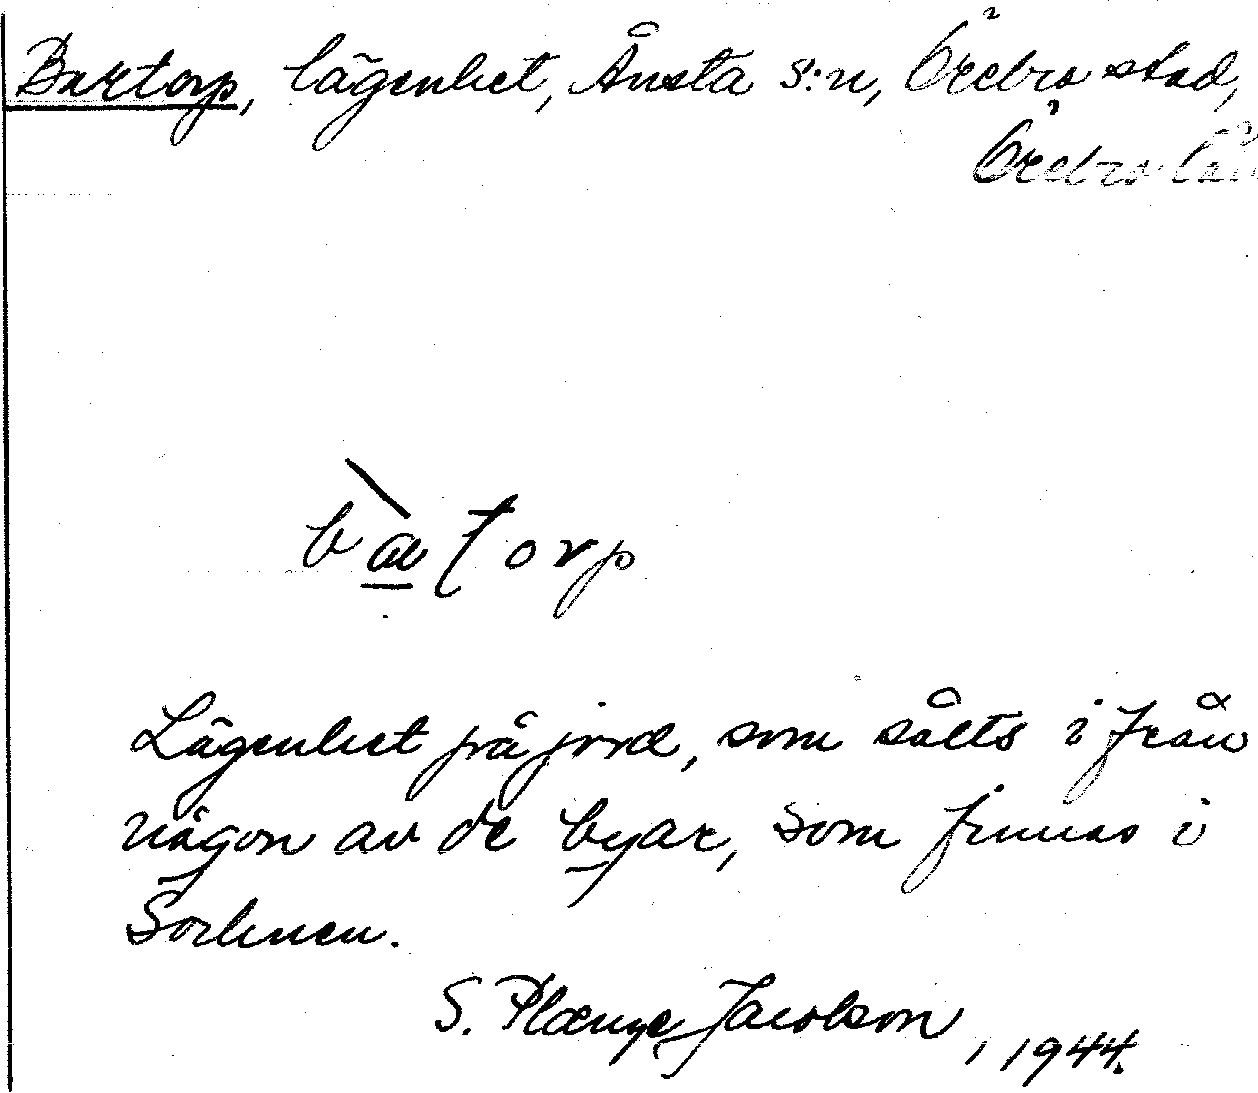 Bartorp, lägenhet, Ånsta s:n, Örebro stad,
Örebro län
bàtorp
Lägenhet på jord, som sålts i från
någon av de byar, som finnas i
S. Plænge Jacobson, 1944.